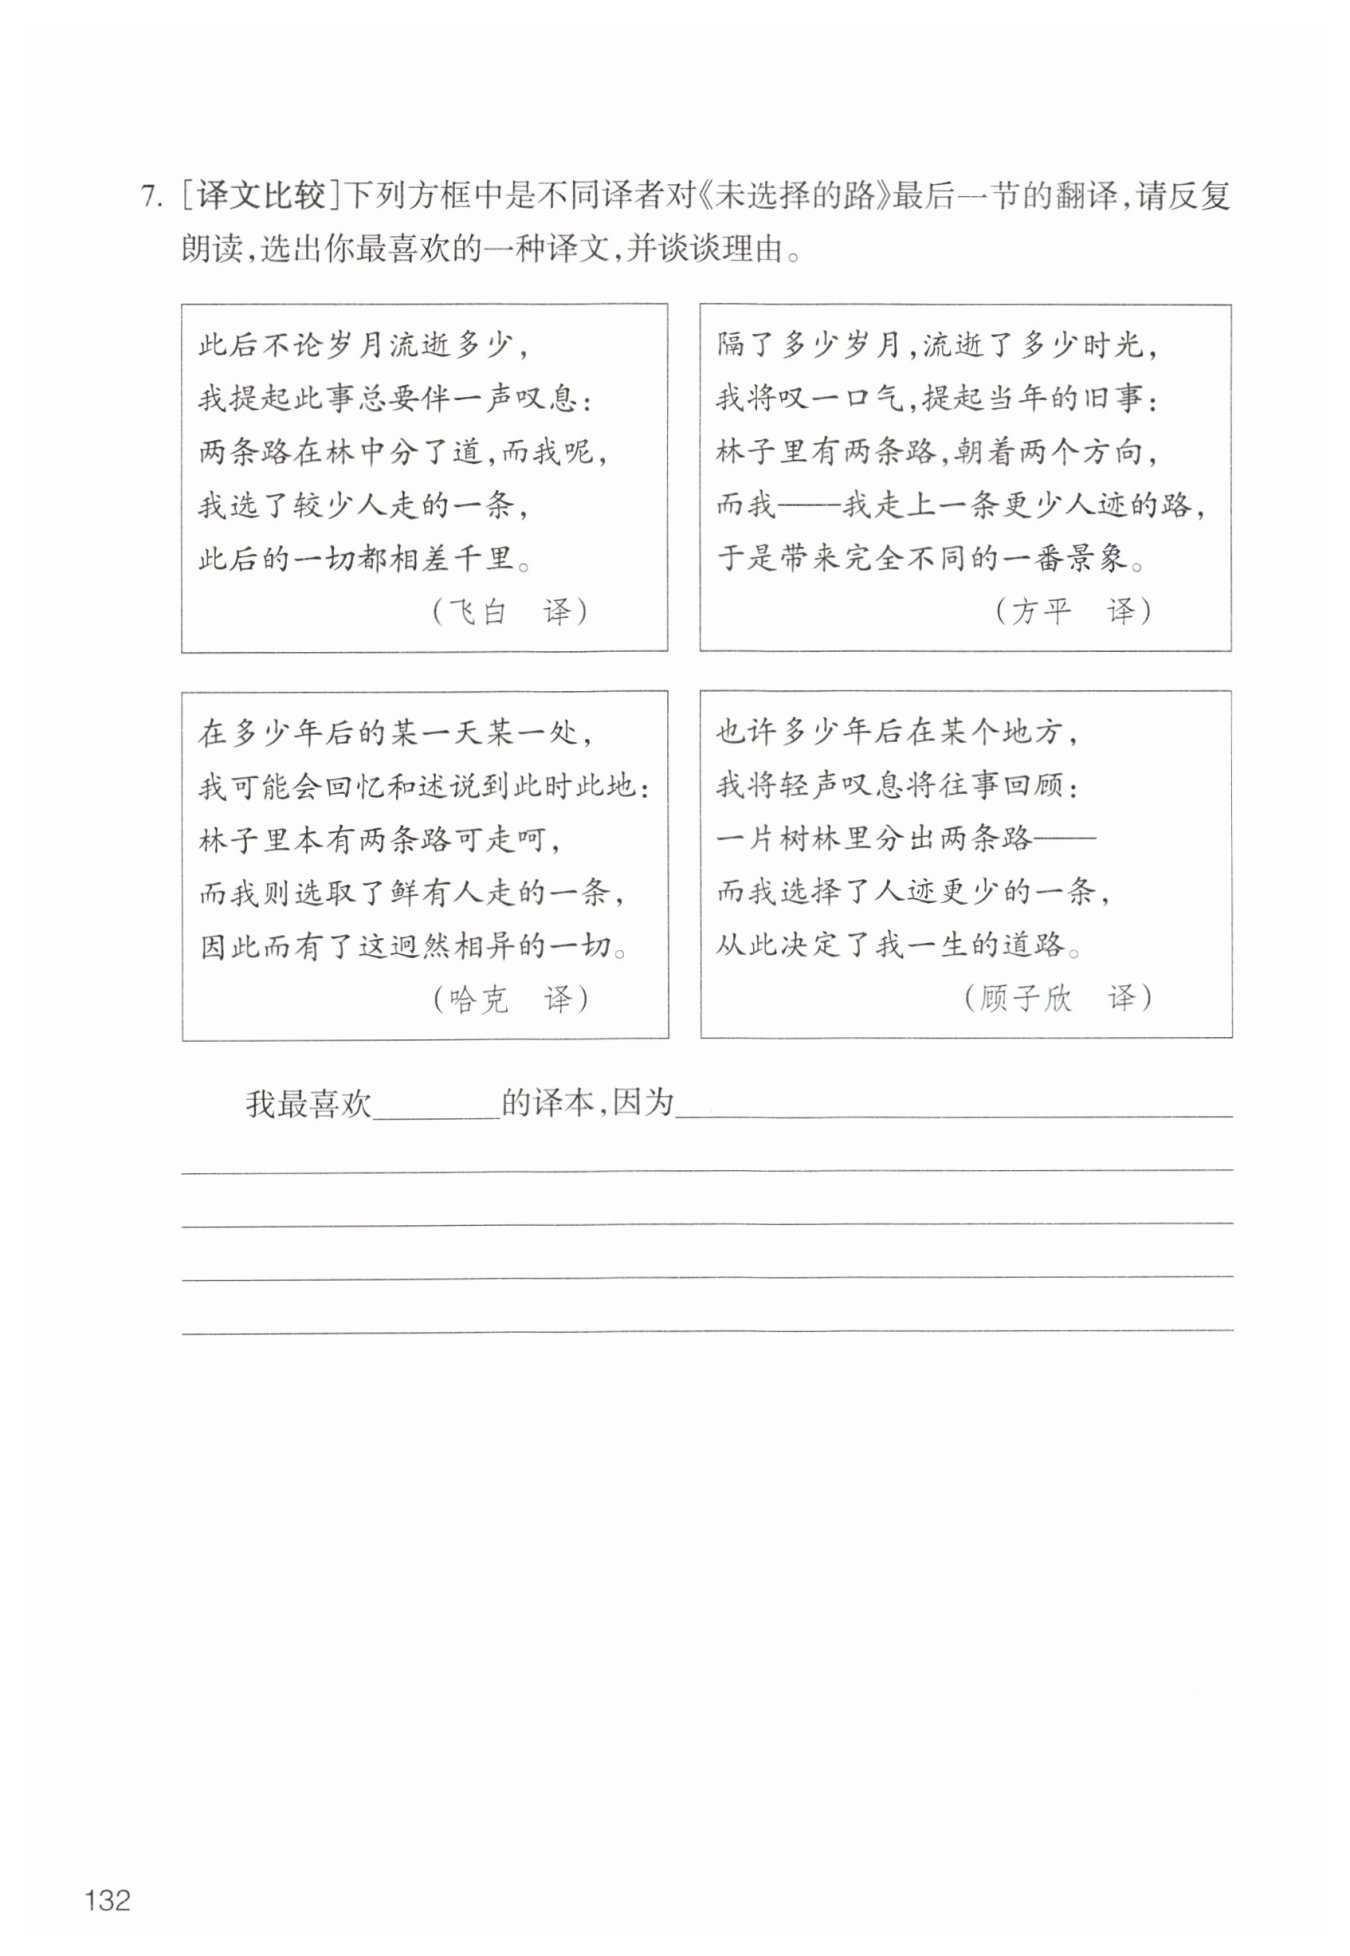 7. [译文比较]下列方框中是不同译者对《未选择的路》最后一节的翻译,请反复
朗读,选出你最喜欢的一种译文,并谈谈理由。
此后不论岁月流逝多少,
我提起此事总要伴一声叹息:
两条路在林中分了道,而我呢,
我选了较少人走的一条,
此后的一切都相差千里。
(飞白 译)
隔了多少岁月,流逝了多少时光,
我将叹一口气,提起当年的旧事:
林子里有两条路,朝着两个方向,
而我——我走上一条更少人迹的路,
于是带来完全不同的一番景象。
(方平 译)
在多少年后的某一天某一处,
我可能会回忆和述说到此时此地:
林子里本有两条路可走呵,
而我则选取了鲜有人走的一条,
因此而有了这迥然相异的一切。
(哈克 译)
也许多少年后在某个地方,
我将轻声叹息将往事回顾:
一片树林里分出两条路——
而我选择了人迹更少的一条,
从此决定了我一生的道路。
(顾子欣 译)
我最喜欢________的译本,因为
132